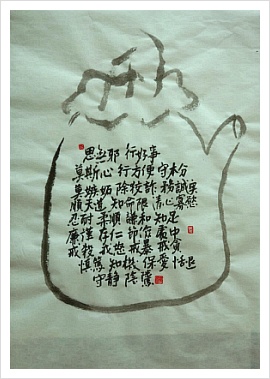 思無邪 行好事
莫欺心 行方便 守本分
莫嫉妒 除狡詐 務誠實
順天道 知命限 清心寡慾
忍耐柔順 謙和知足
廉謹存仁 節儉處中
戒殺戒怒 戒暴戒貪
慎篤知機 保愛恬退
守靜陰隲